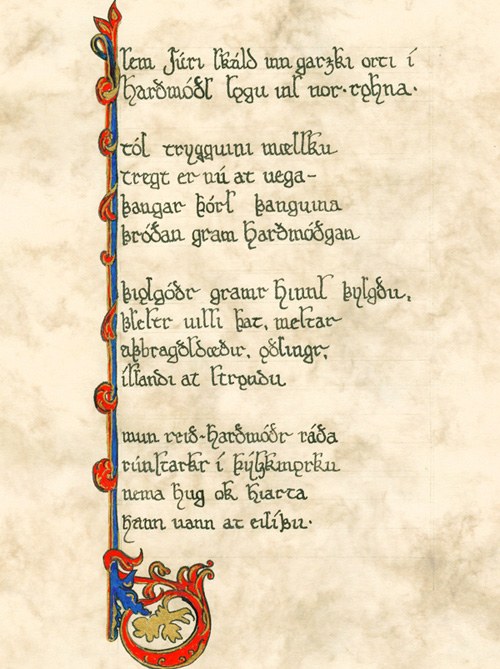 sem Júri skáld inn garzki orti í
harðmóðs sǫgu ins
tól trygguini mællsku
tregt er nú at uega-
fangar þórs fanguina
fróðan gram harðmóðgan
fiǫlgóðr gramr hinns fylgðu,
flestr uilli þat, mestar
afbragðsdœðir, ǫðlingr,
íslandi at strǫndu
mun reið-harðmóðr ráða
rúnstarkr í fýlzkmyrku
nema hug ok hiarta
hann uann at eilífu·